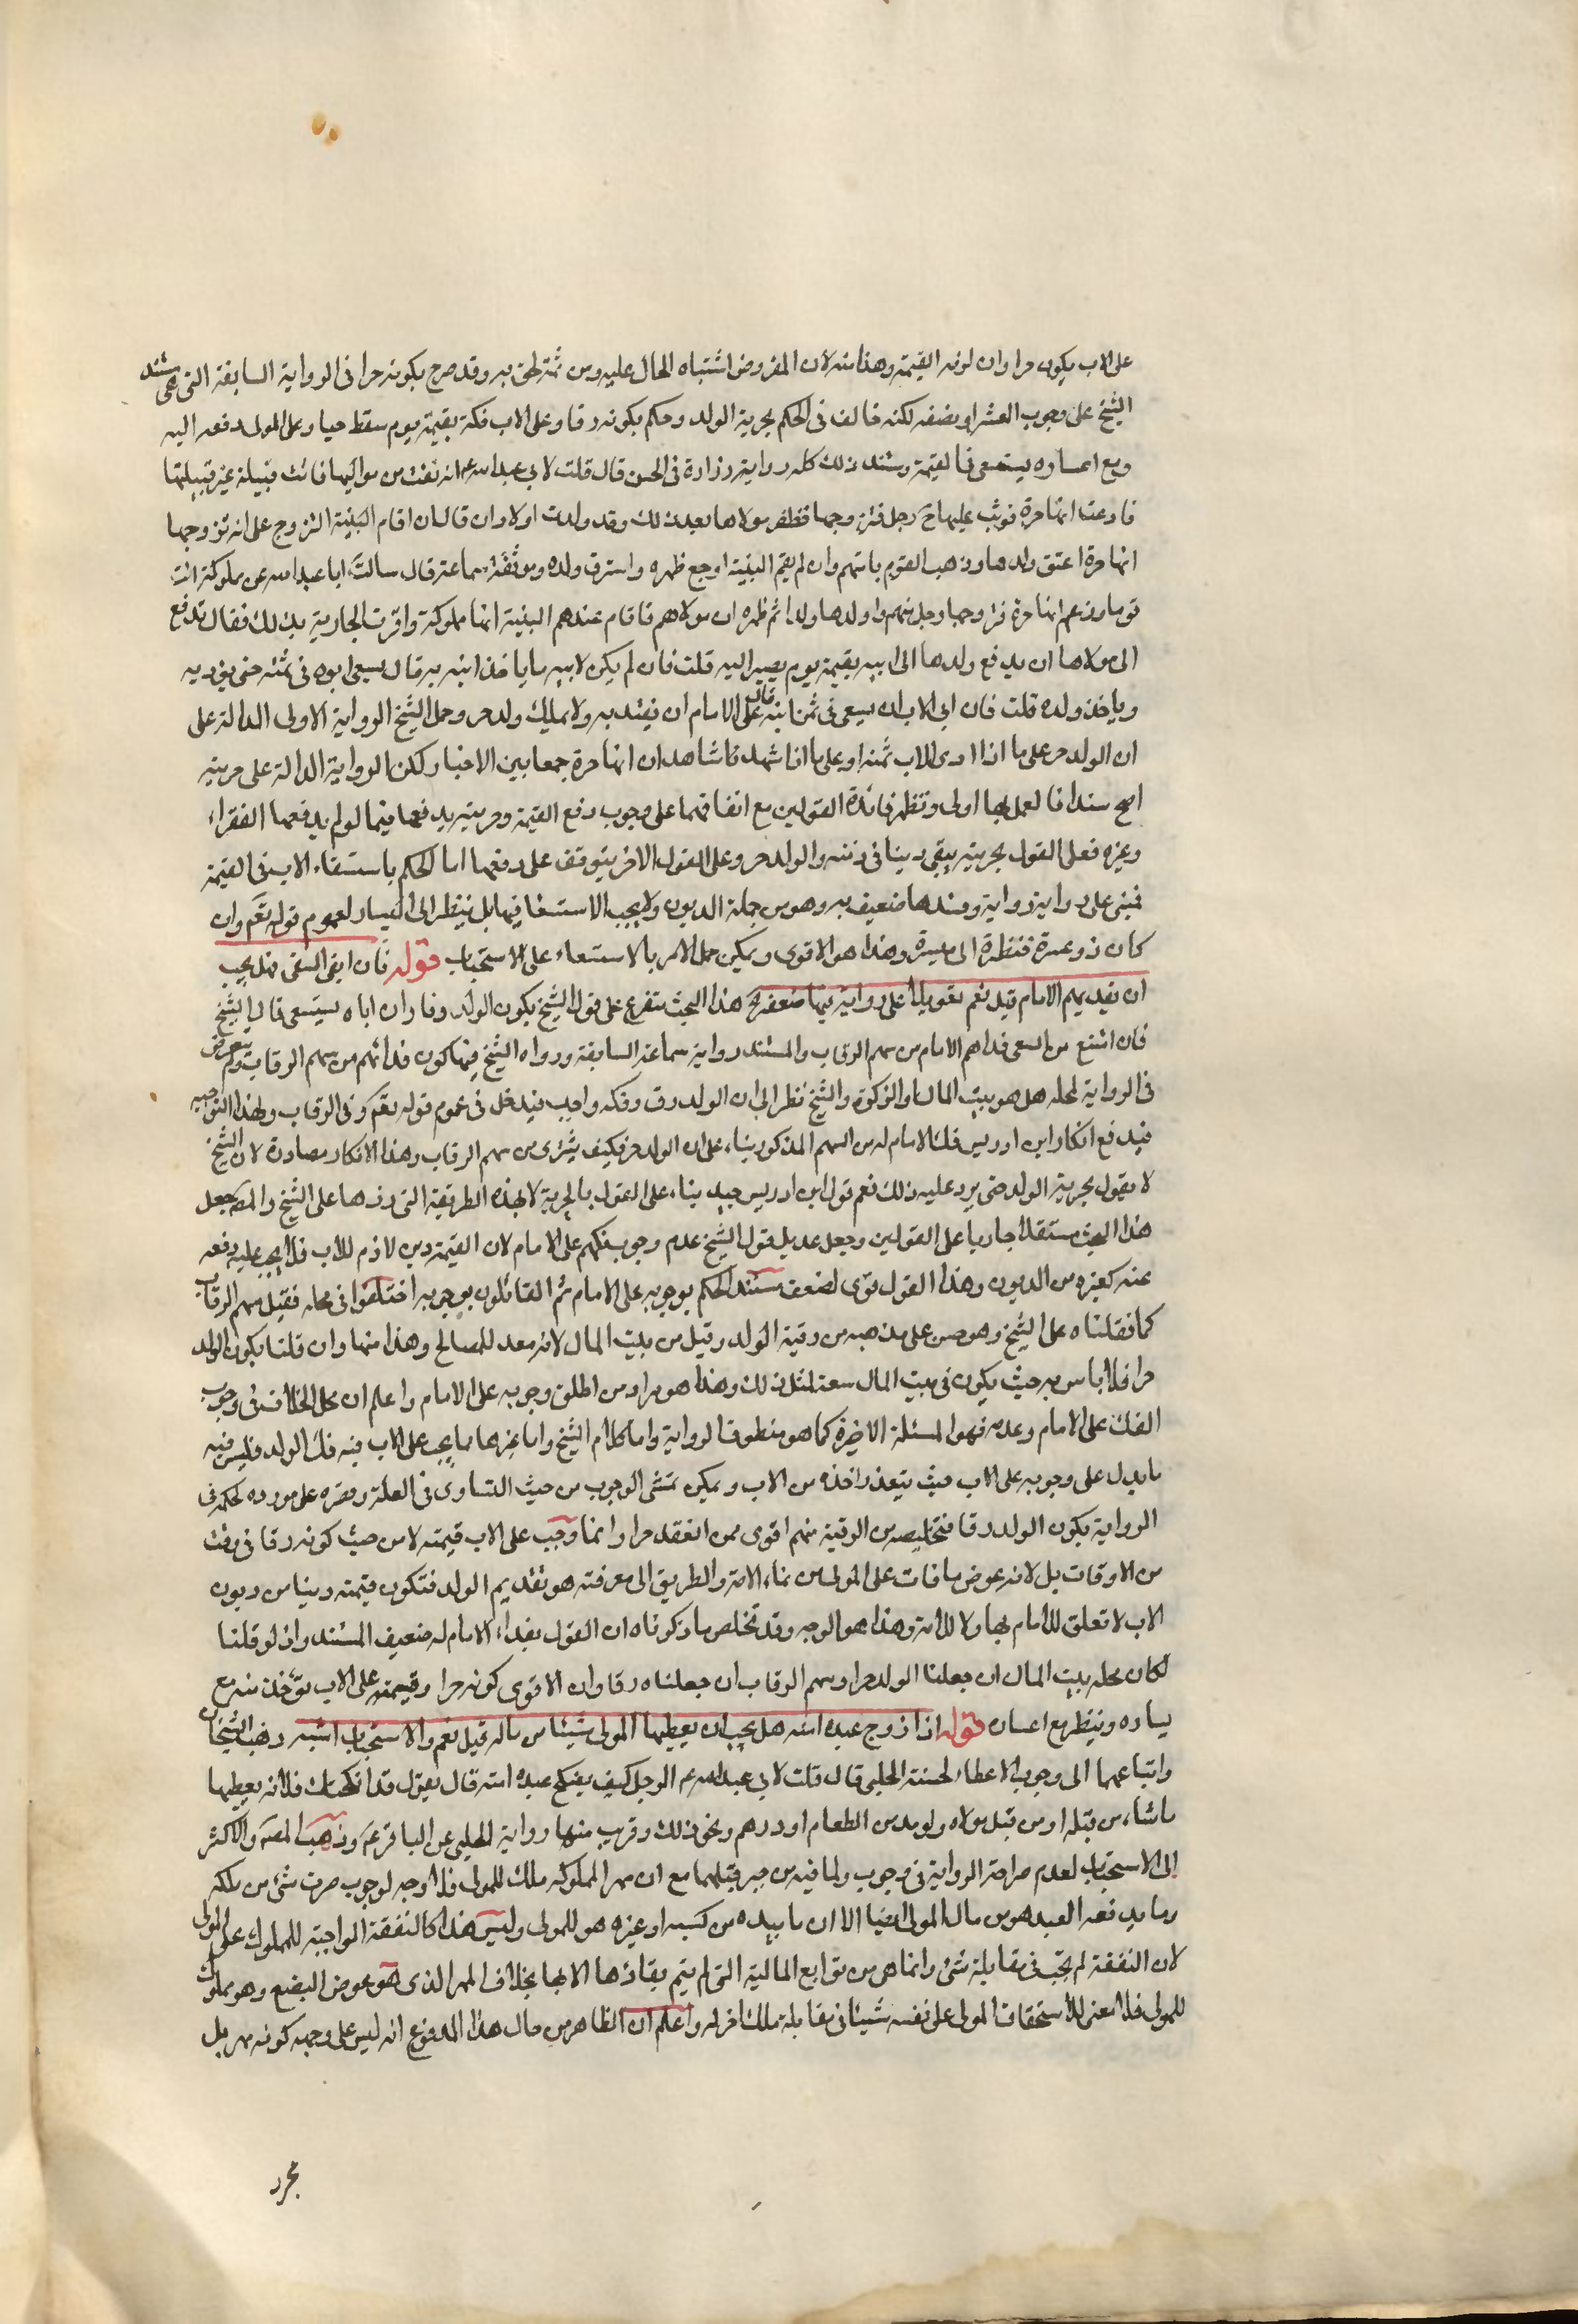 على الاب يكون حرا وان لزمه القيمة وهذا منه لان المفروض اشتباه الحال عليه ومن ثمة لحق به وقد صرح بكونه حرا فى الرواية السابقة التى هى مستند
الشيخ على وجوب العشر او نصفه لكنه خالف فى الحكم بحرية الولد وحكم بكونه رقا وعلى الاب فكه بقيمة يوم سقط حيا وعلى المولى دفعه اليه
ومع اعساره يستسعى فى القيمة ومستند ذلك كله رواية زرارة فى الحسن قال قلت لابى عبدالله ع امة ابقت من مواليها فاتت قبيلة غير قبيلتها
فادعت انها حرة فوثب عليها ح رجل فتزوجها فظفر مولاها بعد ذلك وقد ولدت اولادا ان قال ان اقام البينة الزوج على انه تزوجها
انها حرة اعتق ولدها وذهب القوم بامتهم وان لم يقم البينة اوجع ظهره واسترق ولده وموثقة سماعة قال سالت ابا عبدالله عن مملوكة اتت
قوما وزعم انها حرة فتزوجها رجل منهم واولدها ولدا ثم ظهر ان مولاهم فاقام عندهم البينة انها مملوكة واقرت الجارية بذلك فقال تدفع
الى مولاها ان يدفع ولدها الى ابيه بقيمة يوم يصير اليه قلت فان لم يكن لابيه ما ياخذ ابنه به قال يسعى ابوه فى ثمنه حتى يؤديه
وياخذ ولده قلت فان ابى الاب ان يسعى فى ثمن ابنه قال على الامام ان يفتديه ولا يملك ولد حر وحمل الشيخ الرواية الاولى الدالة على
ان الولد حر على ما اذا ادى الاب ثمنه او على ما اذا شهد شاهدان انها حرة جمعا بين الاخبار لكن الرواية الدالة على حريته
اصح سندا فالعمل بها اولى وتظهر فائدة القولين مع اتفاقهما على وجوب دفع القيمة وحريته بدفعها فيما لو لم يدفعها الفقراء
وغيره فعلى القول بحريته يبقى دينا فى ذمته والولد حر وعلى القول الاخر يتوقف على دفعها اما الحكم باستسعاء الاب فى القيمة
فمبنى على رواية وسندها ضعيف به وهو من جملة الديون ولا يجب الاستسعا فيها بل ينتظر الى اليسار لعموم قوله تعم وان
كان ذو عسرة فنظرة الى ميسرة وهذا هو الاقوى ويمكن حمل الامر بالاستسعاء على الاستحباب قوله فان ابى السعى فهل يجب
ان يفديهم الامام قيل نعم تعويلا على رواية فيها ضعف الخ هذا البحث متفرع على قول الشيخ بكون الولد وفا وان اباه يستسعى قال الشيخ
فان امتنع من السعى فداهم الامام من سهم الرقاب والمستند رواية سماعة السابقة ورواه الشيخ فيها كون فدائهم من سهم الرقاب ولم يتعرض
فى الرواية لمحله هل هو بيت المال او الزكوة والشيخ نظر الى ان الولد رق وفكه واجب فيدخل فى عموم قوله تعم وفى الرقاب وبهذا التوجيه
فيدفع انكار ابن ادريس فك الامام له من السهم المذكور بناء على ان الولد حر فكيف يشترى من سهم الرقاب وهذا الانكار مصادرة لان الشيخ
لا يقول بحرية الولد حتى يرد عليه ذلك نعم قول ابن ادريس جيد بناء على القول بالحرية لا بهذه الطريقة التى ردها على الشيخ والمصم جعل
هذا البحث مستقلا جاريا على القولين وجعل عديل قول الشيخ عدم وجوب فكهم على الامام لان القيمة دين لازم للاب فلا يجب عليه دفعه
عنه كغيره من الديون وهذا القول قوى لضعف مستند الحكم بوجوبه على الامام ثم القائلون بوجوبه اختلفوا فى محله فقيل سهم الرقاب
كما نقلناه على الشيخ وهو حسن على مذهبه من رقية الولد وقيل من بيت المال لانه معد للمصالح وهذا منها وان قلنا بكون الولد
حرا فلا باس به حيث يكون فى بيت المال سعة لمثل ذلك وهذا هو مراد من اطلق وجوبه على الامام واعلم ان محل الخلاف فى وجوب
الفك على الامام وعدمه فهو المسئلة الاخيرة كما هو منطوق الرواية واما كلام الشيخ واما غيرها مما يجب على الاب فيه فك الولد فليس فيه
ما يدل على وجوبه على الاب حيث يتعذر اخذه من الاب ويمكن تمشى الوجوب من حيث التساوى فى العلة وقصره على مورده لحكمه فى
الرواية بكون الولد رقا فتخليصه من الرقية منهم اقوى ممن انعقد حرا وانما وجب على الاب قيمته لا من حيث كونه رقا فى وقت
من الاوقات بل لانه عوض ما فات على المولى من نماء الامة والطريق الى معرفته هو تقديم الولد فتكون قيمته دينا من ديون
الاب لا تعلق للامام بها ولا للامة وهذا هو الوجه وقد تخلص ما ذكرناه ان القول بفداء الامام له ضعيف المستند وانه لو قلنا
لكان محله بيت المال ان جعلنا الولد حرا وسهم الرقاب ان جعلناه رقا وان الاقوى كونه حرا وقيمته على الاب تؤخذ منه مع
يساره وينتظر مع اعسان قوله اذا زوج عبده امته هل يجب ان يعطيها المولى شيئا من ماله قيل نعم والاستحباب اشبه ذهب الشيخان
واتباعهما الى وجوب الاعطاء لحسنة الحلبى قال قلت لابى عبدالله ع الرجل كيف ينكح عبده امته قال يقول قد انكحتك فلانة يعطيها
ما شاء من قبله او من قبل مولاه ولو مد من الطعام او درهم ونحو ذلك وقريب منها رواية الحلبى عن الباقر ع وذهب المصم والاكثر
الى الاستحباب لعدم صراحة الرواية فى وجوب ولما فيه من جبر قبلهما مع ان مهر المملوكه ملك للمولى فلا وجه لوجوب صرت شئ من ملكه
وما يدفعه العبد هو من مال المولى ايضا الا ان ما بيده من كسبه او غيره هو للمولى وليس هذا كالنفقة الواجبة للمملوك على المولى
لان النفقة لم يجب فى مقابلة شئ وانما هى من توابع المالية التى لم يتم بقاؤها الا بها بخلاف المهر الذى هو عوض البضع وهو مملوك
للمولى فلا معنى للاستحقاق المولى على نفسه شيئا فى مقابلة ملك اخر له واعلم ان الظاهر من حال هذا المدفوع انه ليس على وجه كونه مهر بل
مجرد